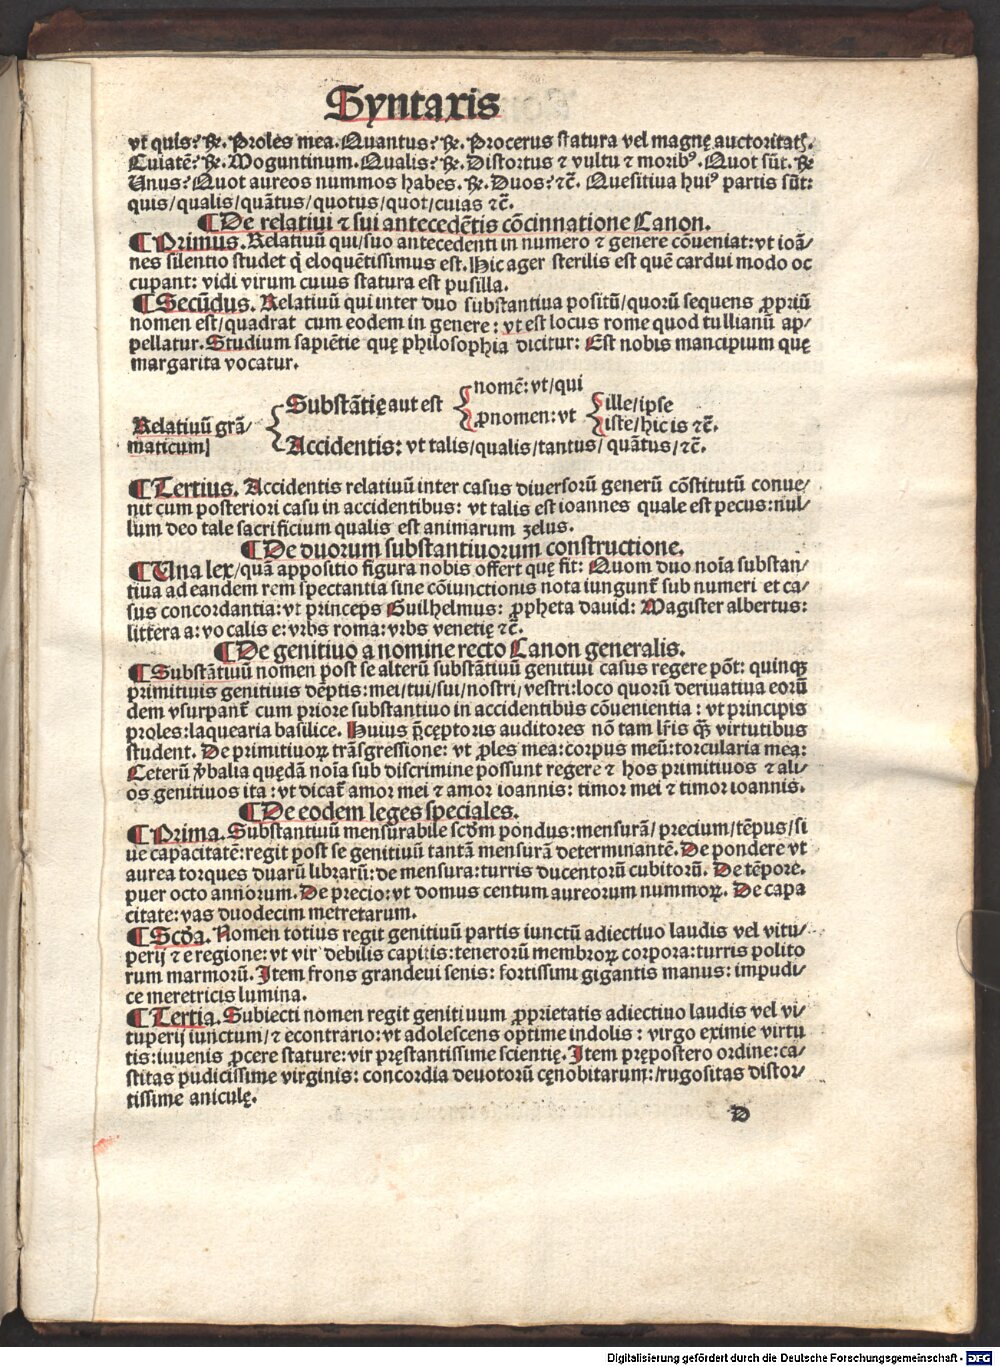 Syntaxis
vt quis? ℞. Proles mea. Quantus? ℞. Procerus statura vel magnę auctoritatꝭ.
Cuiatē? ℞. Moguntinum. Qualis? ℞. Distortus ⁊ vultu ⁊ moribꝰ. Quot sūt. ℞
Unus? Quot aureos nummos habes. ℞. Duos? ⁊c̄. Quesitiua huiꝰ partis sūt:
quis/qualis/quātus/quotus/quot/cuias ⁊c̄.
¶ De relatiui ⁊ sui antecedētis cōcinnatione Canon.
¶ Primus. Relatiuū qui/suo antecedenti in numero ⁊ genere cōueniat: vt ioā/
nes silentio studet q̇ eloquētissimus est. Hic ager sterilis est quē cardui modo oc
cupant: vidi virum cuius statura est pusilla.
¶ Secūdus. Relatiuū qui inter duo substantiua positū/quorū sequens ꝓpriū
nomen est/quadrat cum eodem in genere: vt est locus rome quod tullianū ap/
pellatur. Studium sapiētie quę philosophia dicitur: Est nobis mancipium quę
margarita vocatur.
Relatiuū grā/
maticum
Substātię aut est
nomē: vt/qui
ꝓnomen: vt
ille/ipse
iste/hic is ⁊c̄.
Accidentis: vt talis/qualis/tantus/quātus/⁊c̄.
¶ Tertius. Accidentis relatiuū inter casus diuersorū generū cōstitutū conue/
nit cum posteriori casu in accidentibus: vt talis est ioannes quale est pecus: nul/
lum deo tale sacrificium qualis est animarum zelus.
¶ De duorum substantiuorum constructione.
¶ Una lex/quā appositio figura nobis offert quę fit: Quom duo noīa substan/
tiua ad eandem rem spectantia sine cōiunctionis nota iungunt̄ sub numeri et ca/
sus concordantia: vt princeps Guilhelmus: ꝓpheta dauid: Magister albertus:
littera a: vocalis e: vrbs roma: vrbs venetię ⁊c̄.
¶ De genitiuo a nomine recto Canon generalis.
¶ Substātiuū nomen post se alterū substātiuū genitiui casus regere pōt: quinqꝫ
primitiuis genitiuis dēptis: mei/tui/sui/nostri/vestri: loco quorū deriuatiua eorū
dem vsurpant̄ cum priore substantiuo in accidentibus cōuenientia: vt principis
proles: laquearia basilice. Huius p̄cęptoris auditores nō tam lr̄is qꝫ virtutibus
student. De primitiuorꝝ trāsgressione: vt ꝓles mea: corpus meū: torcularia mea:
Ceterū v̓balia quędā noīa sub discrimine possunt regere ⁊ hos primitiuos ⁊ ali/
os genitiuos ita: vt dicat̄ amor mei ⁊ amor ioannis: timor mei ⁊ timor ioannis.
¶ De eodem leges speciales.
¶ Prima. Substantiuū mensurabile scd̄m pondus: mensurā/precium/tēpus/si
ue capacitatē: regit post se genitiuū tantā mensurā determinantē. De pondere vt
aurea torques duarū librarū: de mensura: turris ducentorū cubitorū. De tēpore.
puer octo annorum. De precio: vt domus centum aureorum nummorꝝ. De capa
citate: vas duodecim metretarum.
¶ Scd̄a. Nomen totius regit genitiuū partis iunctū adiectiuo laudis vel vitu/
perij ⁊ e regione: vt vir debilis capitis: tenerorū membrorꝝ corpora: turris polito
rum marmorū. Item frons grandeui senis: fortissimi gigantis manus: impudi/
ce meretricis lumina.
¶ Tertia. Subiecti nomen regit genitiuum ꝓprietatis adiectiuo laudis vel vi/
tuperij iunctum/⁊ econtrario: vt adolescens optime indolis: virgo eximie virtu
tis: iuuenis ꝓcere stature: vir pręstantissime scientię. Item prępostero ordine: ca/
stitas pudicissime virginis: concordia deuotorū cęnobitarum: /rugositas distor/
tissime aniculę.
D
Digitalisierung gefördert durch die Deutsche Forschungsgemeinschaft - DFG